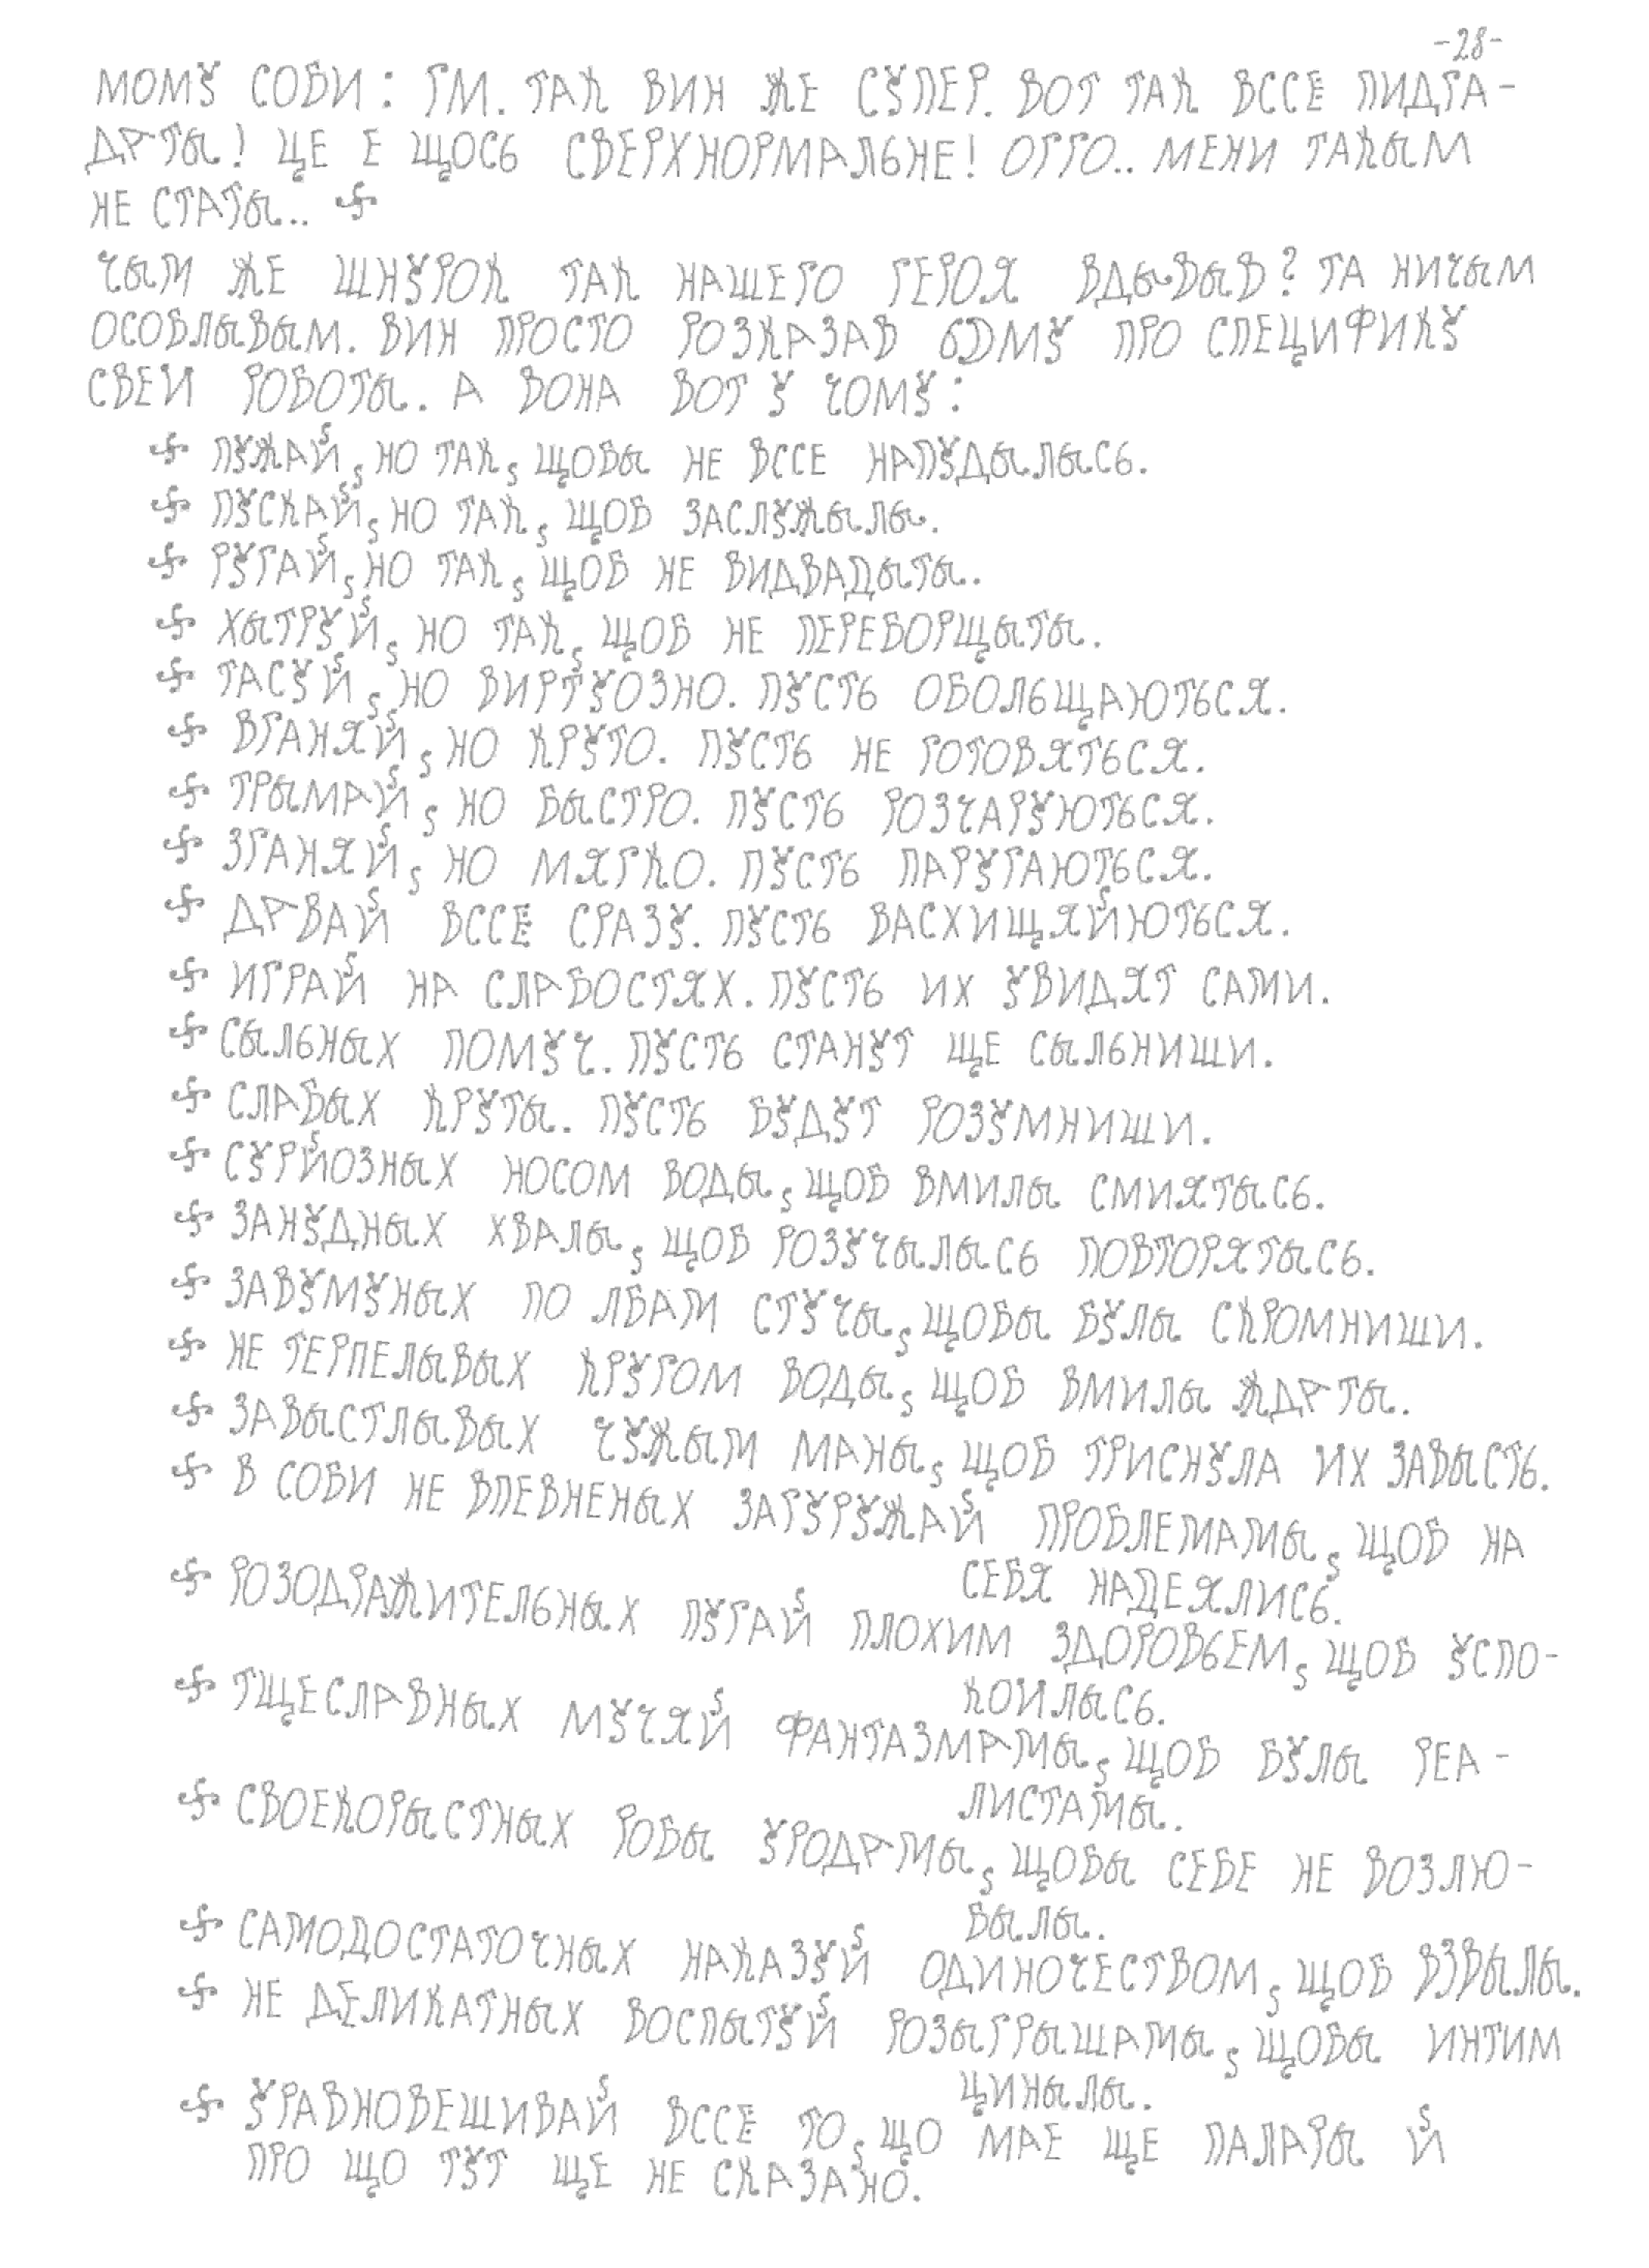 -28-
МОМУ СОБИ: ГМ. ТАК ВИН ЖЕ СУПЕР. ВОТ ТАК ВССЕ ПИДГА-
ДАТЫ! ЦЕ Е ЩОСЬ СВЕРХНОРМАЛЬНЕ! ОГГО.. МЕНИ ТАКЫМ
НЕ СТАТЫ.. 卐
ЧЫМ ЖЕ ШНУРОК ТАК НАШЕГО ГЕРОЯ ВДЫВЫВ? ТА НИЧЫМ
ОСОБЛЫВЫМ. ВИН ПРОСТО РОЗКАЗАВ ЬОМУ ПРО СПЕЦИФИКУ
СВЕИ РОБОТЫ. А ВОНА ВОТ У ЧОМУ:
卐 ПУЖАЙ, НО ТАК, ЩОБЫ НЕ ВССЕ НАПУДЫЛЫСЬ.
卐 ПУСКАЙ, НО ТАК, ЩОБ ЗАСЛУЖЫЛЫ.
卐 РУГАЙ, НО ТАК, ЩОБ НЕ ВИДВАДЫТЫ.
卐 ХЫТРУЙ, НО ТАК, ЩОБ НЕ ПЕРЕБОРЩЫТЫ.
卐 ТАСУЙ, НО ВИРТУОЗНО. ПУСТЬ ОБОЛЬЩАЮТЬСЯ.
卐 ВГАНЯЙ, НО КРУТО. ПУСТЬ НЕ ГОТОВЯТЬСЯ.
卐 ТРЫМАЙ, НО БЫСТРО. ПУСТЬ РОЗЧАРУЮТЬСЯ.
卐 ЗГАНЯЙ, НО МЯГКО. ПУСТЬ ПАРУГАЮТЬСЯ.
卐 ДАВАЙ ВССЕ СРАЗУ. ПУСТЬ ВАСХИЩЯЙЮТЬСЯ.
卐 ИГРАЙ НА СЛАБОСТЯХ. ПУСТЬ ИХ УВИДЯТ САМИ.
卐 СЫЛЬНЫХ ПОМУЧ. ПУСТЬ СТАНУТ ЩЕ СЫЛЬНИШИ.
卐 СЛАБЫХ КРУТЫ. ПУСТЬ БУДУТ РОЗУМНИШИ.
卐 СУРЙОЗНЫХ НОСОМ ВОДЫ, ЩОБ ВМИЛЫ СМИЯТЫСЬ.
卐 ЗАНУДНЫХ ХВАЛЫ, ЩОБ РОЗУЧЫЛЫСЬ ПОВТОРЯТЫСЬ.
卐 ЗАВУМУНЫХ ПО ЛБАМ СТУЧЫ, ЩОБЫ БУЛЫ СКРОМНИШИ.
卐 НЕ ТЕРПЕЛЫВЫХ КРУГОМ ВОДЫ, ЩОБ ВМИЛЫ ЖДАТЫ.
卐 ЗАВЫСТЛЫВЫХ ЧУЖЫМ МАНЫ, ЩОБ ТРИСНУЛА ИХ ЗАВЫСТЬ.
卐 В СОБИ НЕ ВПЕВНЕНЫХ ЗАГУРУЖАЙ ПРОБЛЕМАМЫ, ЩОБ НА
СЕБЯ НАДЕЯЛИСЬ.
卐 РОЗОДРАЖИТЕЛЬНЫХ ПУГАЙ ПЛОХИМ ЗДОРОВЬЕМ, ЩОБ УСПО-
КОИЛЫСЬ.
卐 ТЩЕСЛАВНЫХ МУЧЯЙ ФАНТАЗМАМЫ, ЩОБ БУЛЫ РЕА-
ЛИСТАМЫ.
卐 СВОЕКОРЫСТНЫХ РОБЫ УРОДАМЫ, ЩОБЫ СЕБЕ НЕ ВОЗЛЮ-
БЫЛЫ.
卐 САМОДОСТАТОЧНЫХ НАКАЗУЙ ОДИНОЧЕСТВОМ, ЩОБ ВЗВЫЛЫ.
卐 НЕ ДЕЛИКАТНЫХ ВОСПЫТУЙ РОЗЫГРЫШАМЫ, ЩОБЫ ИНТИМ
ЦИНЫЛЫ.
卐 УРАВНОВЕШИВАЙ ВССЕ ТО, ЩО МАЕ ЩЕ ПАЛАРЫ Й
ПРО ЩО ТУТ ЩЕ НЕ СКАЗАНО.